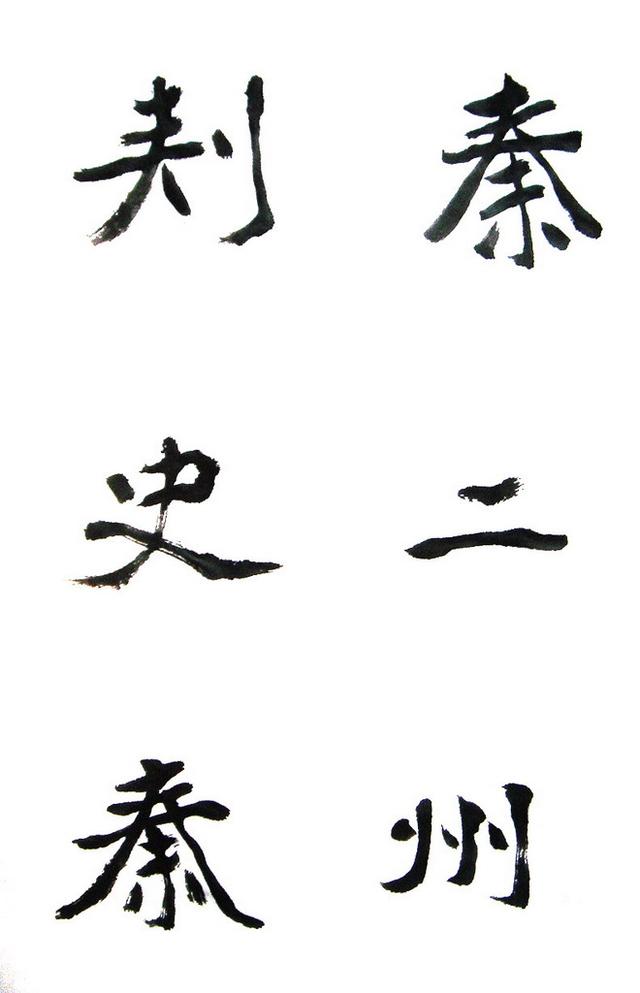 秦二州
刾史秦